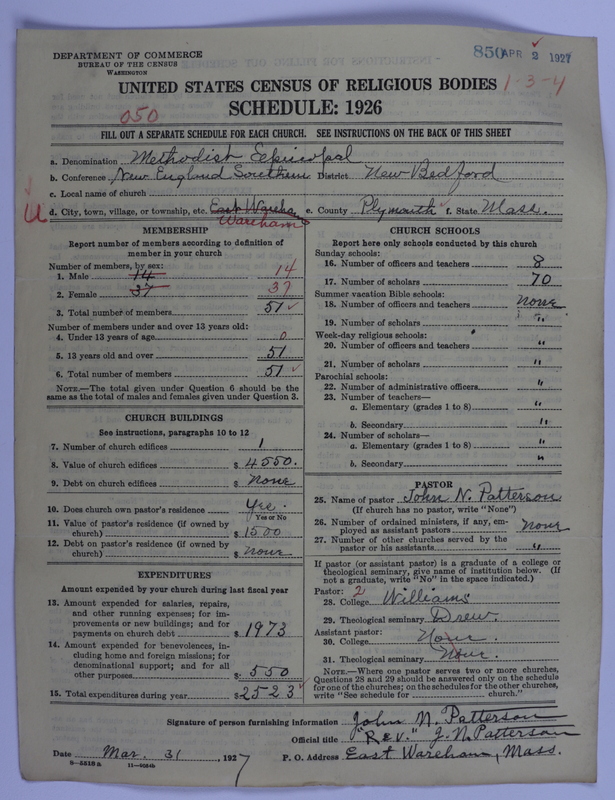 DEPARTMENT OF COMMERCE
BUREAU OF THE CENSUS
WASHINGTON
850 APR 2 1927
UNITED STATES CENSUS OF RELIGIOUS BODIES
1-3-4
SCHEDULE: 1926
050
FILL OUT A SEPARATE SCHEDULE FOR EACH CHURCH. SEE INSTRUCTIONS ON THE BACK OF THIS SHEET
a. Denomination Methodist Episcopal
b. Conference New England Southern District New Bedford
c. Local name of church
d. City, town, village, or township, etc. East Wareham e. County Plymouth f. State Mass.
Wareham
MEMBERSHIP
Report number of members according to definition of
member in your church
Number of members, by sex:
1. Male 14 14
2. Female 37 37
3. Total number of members 51
Number of members under and over 13 years old:
4. Under 13 years of age 0
5. 13 years old and over 51
6. Total number of members 51
NOTE.—The total given under Question 6 should be the
same as the total of males and females given under Question 3.
CHURCH BUILDINGS
See instructions, paragraphs 10 to 12
7. Number of church edifices 1
8. Value of church edifices $ 4550.
9. Debt on church edifices $ None
10. Does church own pastor's residence Yes.
Yes or No
11. Value of pastor's residence (if owned by
church) $ 1500
12. Debt on pastor's residence (if owned by
church) $ None
EXPENDITURES
Amount expended by your church during last fiscal year
13. Amount expended for salaries, repairs,
and other running expenses; for im-
provements or new buildings; and for
payments on church debt $ 1973
14. Amount expended for benevolences, in-
cluding home and foreign missions; for
denominational support; and for all
other purposes $ 550
15. Total expenditures during year $ 2523
CHURCH SCHOOLS
Report here only schools conducted by this church
Sunday schools:
16. Number of officers and teachers 8
17. Number of scholars 70
Summer vacation Bible schools:
18. Number of officers and teachers None
19. Number of scholars "
Week-day religious schools:
20. Number of officers and teachers "
21. Number of scholars "
Parochial schools:
22. Number of administrative officers "
23. Number of teachers—
a. Elementary (grades 1 to 8) "
b. Secondary "
24. Number of scholars—
a. Elementary (grades 1 to 8) "
b. Secondary "
PASTOR
25. Name of pastor John N. Patterson
(If church has no pastor, write "None")
26. Number of ordained ministers, if any, em-
ployed as assistant pastors None
27. Number of other churches served by the
pastor or his assistants "
If pastor (or assistant pastor) is a graduate of a college or
theological seminary, give name of institution below. (If
not a graduate, write "No" in the space indicated.)
Pastor: 2
28. College Williams
29. Theological seminary Drew.
Assistant pastor:
30. College None.
31. Theological seminary None.
NOTE.—Where one pastor serves two or more churches,
Questions 28 and 29 should be answered only on the schedule
for one of the churches; on the schedules for the other churches,
write "See schedule for church."
Signature of person furnishing information John N. Patterson
Official title "Rev." J. N. Patterson
Date Mar. 31, 1927 P. O. Address East Wareham, Mass.